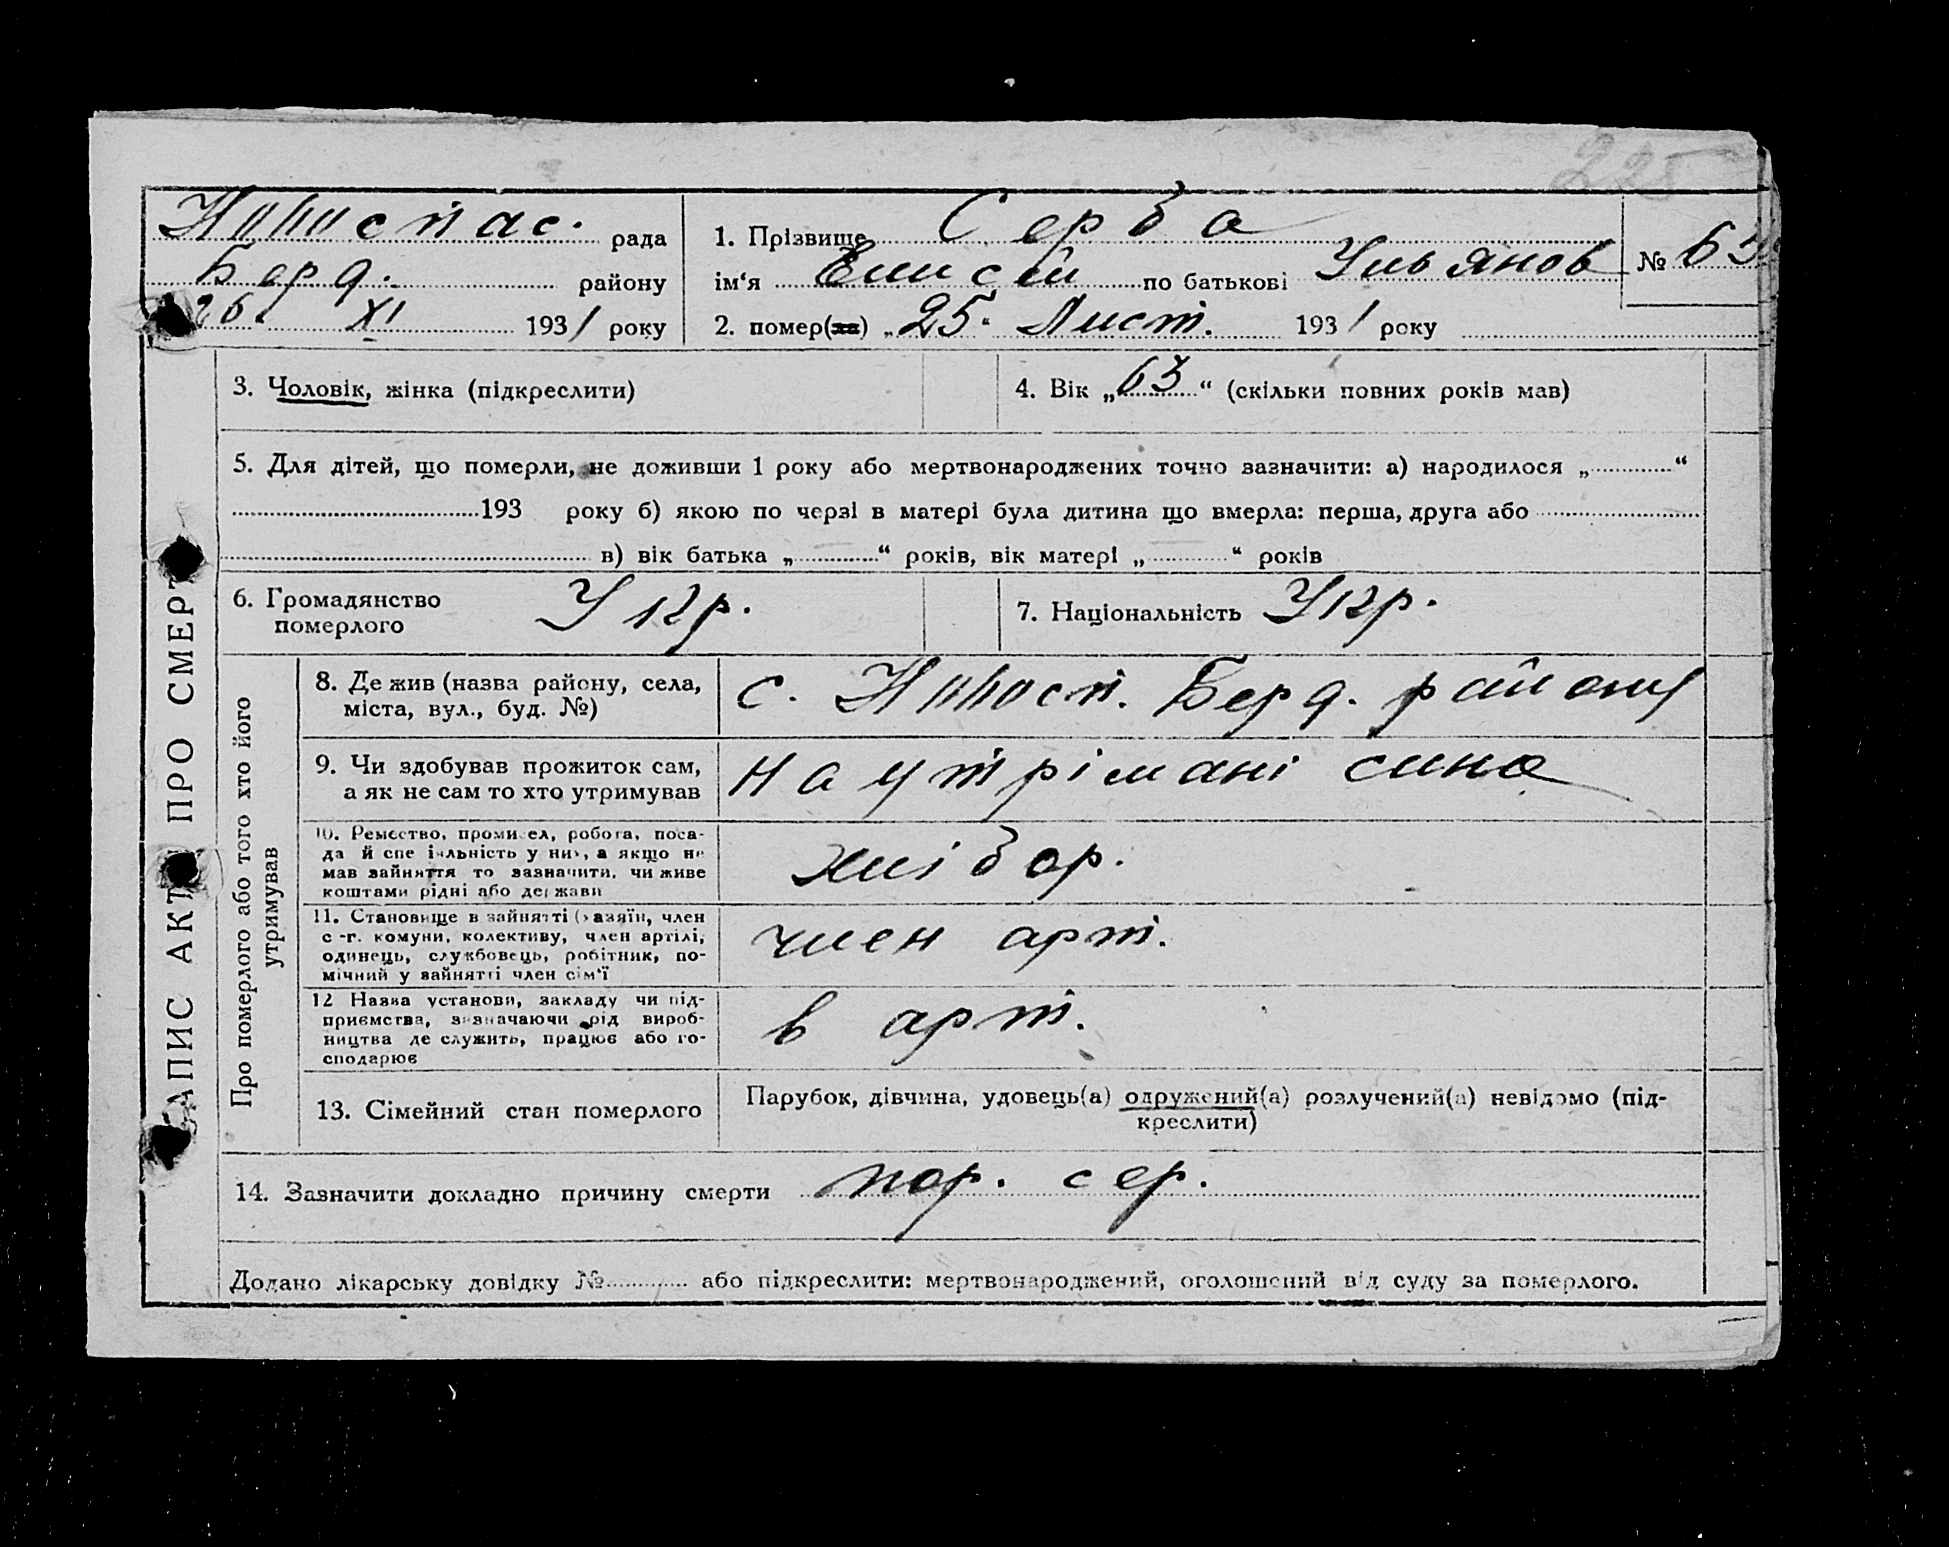 225
Новоспас. рада
Берд. району
26 XI 1931 року
1. Прізвище Серба
ім‘я Елисей по батькові Ульянов
№ 65
2. помер(ла) „25“ Лист. 1931 року
3. Чоловік, жінка (підкреслити)
4. Вік „63“ (скільки повних років мав)
5. Для дітей, що померли, не доживши 1 року або мертвонароджених точно зазначити: а) народилося „ “
193 року б) якою по черзі в матері була дитина що вмерла: перша, друга або
в) вік батька „ “ років, вік матері „ “ років
6. Громадянство
померлого
Укр.
7. Національність Укр.
ЗАПИС АКТУ ПРО СМЕРТ
Про померлого або того хто його
утримував
8. Де жив (назва району, села,
міста, вул., буд. №)
с. Новосп. Берд. району
9. Чи здобував прожиток сам,
а як не сам то хто утримував
на утрімані сина
10. Ремество, промисел, робота, поса-
да й спеціяльність у них, а якщо не
мав зайняття то зазначити, чи живе
коштами рідні або держави
хлібор.
11. Становище в зайнятті (хазяїн, член
с.-г. комуни, колективу, член артілі,
одинець, службовець, робітник, по-
мічний у зайнятті член сім‘ї
член арт.
12 Назва установи, закладу чи під-
приємства, зазначаючи рід вироб-
ництва де служить, працює або го-
сподарює
в арт.
13. Сімейний стан померлого
Парубок, дівчина, удовець(а) одружений(а) розлучений(а) невідомо (під-
креслити)
14. Зазначити докладно причину смерти пор. сер.
Додано лікарську довідку № або підкреслити: мертвонароджений, оголошений від суду за померлого.